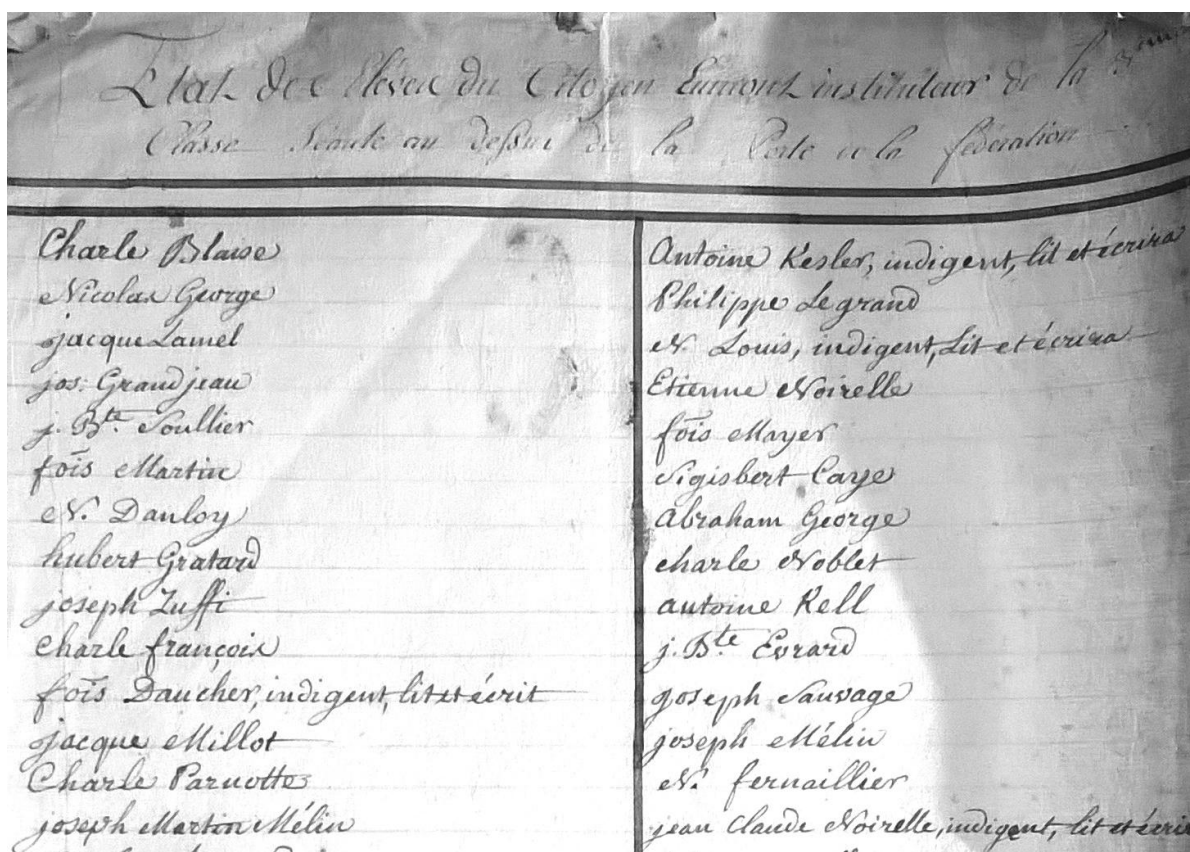 Etat des Eleves du Citoyen instituteur de la 3eme
Classe Scituée au dessus de la Porte de la fédération
Charle Blaise
Nicolas George
jacque Lamel
jos: Grandjean
j. Bte. Soullier
fois Martin
N. Dauloy
hubert Gratard
joseph Zuffi
Charle françois
fois Daucher, indigent, lit et écrit
jacque Millot
Charle Parnotte
joseph Martin Mélin
Antoine Kesler, indigent, lit et écrira
Philippe Legrand
N. Louis, indigent, Lit et écrira
Etienne Noirelle
fois Mayer
Sigisbert Caye
Abraham George
charle Noblet
antoine Kell
j. Bte Evrard
joseph Sauvage
joseph Mélin
N. fernaillier
jean Claude Noirelle, indigent, lit et écri